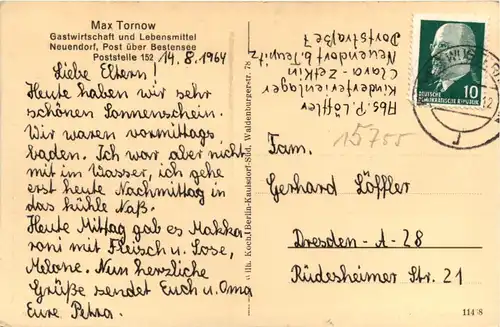 Max Tornow
Gastwirtschaft und Lebensmittel
Neuendorf, Post über Bestensee
Poststelle 152
14.8.1964
Liebe Eltern!
Heute haben wir sehr
schönen Sonnenschein.
Wir waren vormittags
baden. Ich war aber nicht
mit im Wasser, ich gehe
erst heute Nachmittag in
das kühle Naß.
Heute Mittag gab es Makka-
roni mit Fleisch u. Sose,
Melone. Nun herzliche
Grüße sendet Euch u. Oma
Eure Petra.
Wilh. Koch, Berlin-Kaulsdorf-Süd, Waldenburgerstr. 78
Abs. P. Löffler
Kinderferienlager
Clara-Zetkin
Neuendorf b Teupitz
Dorfstraße 7
10
DEUTSCHE
DEMOKRATISCHE REPUBLIK
15755
Fam.
Gerhard Löffler
Dresden-A-28
Rüdesheimer Str. 21